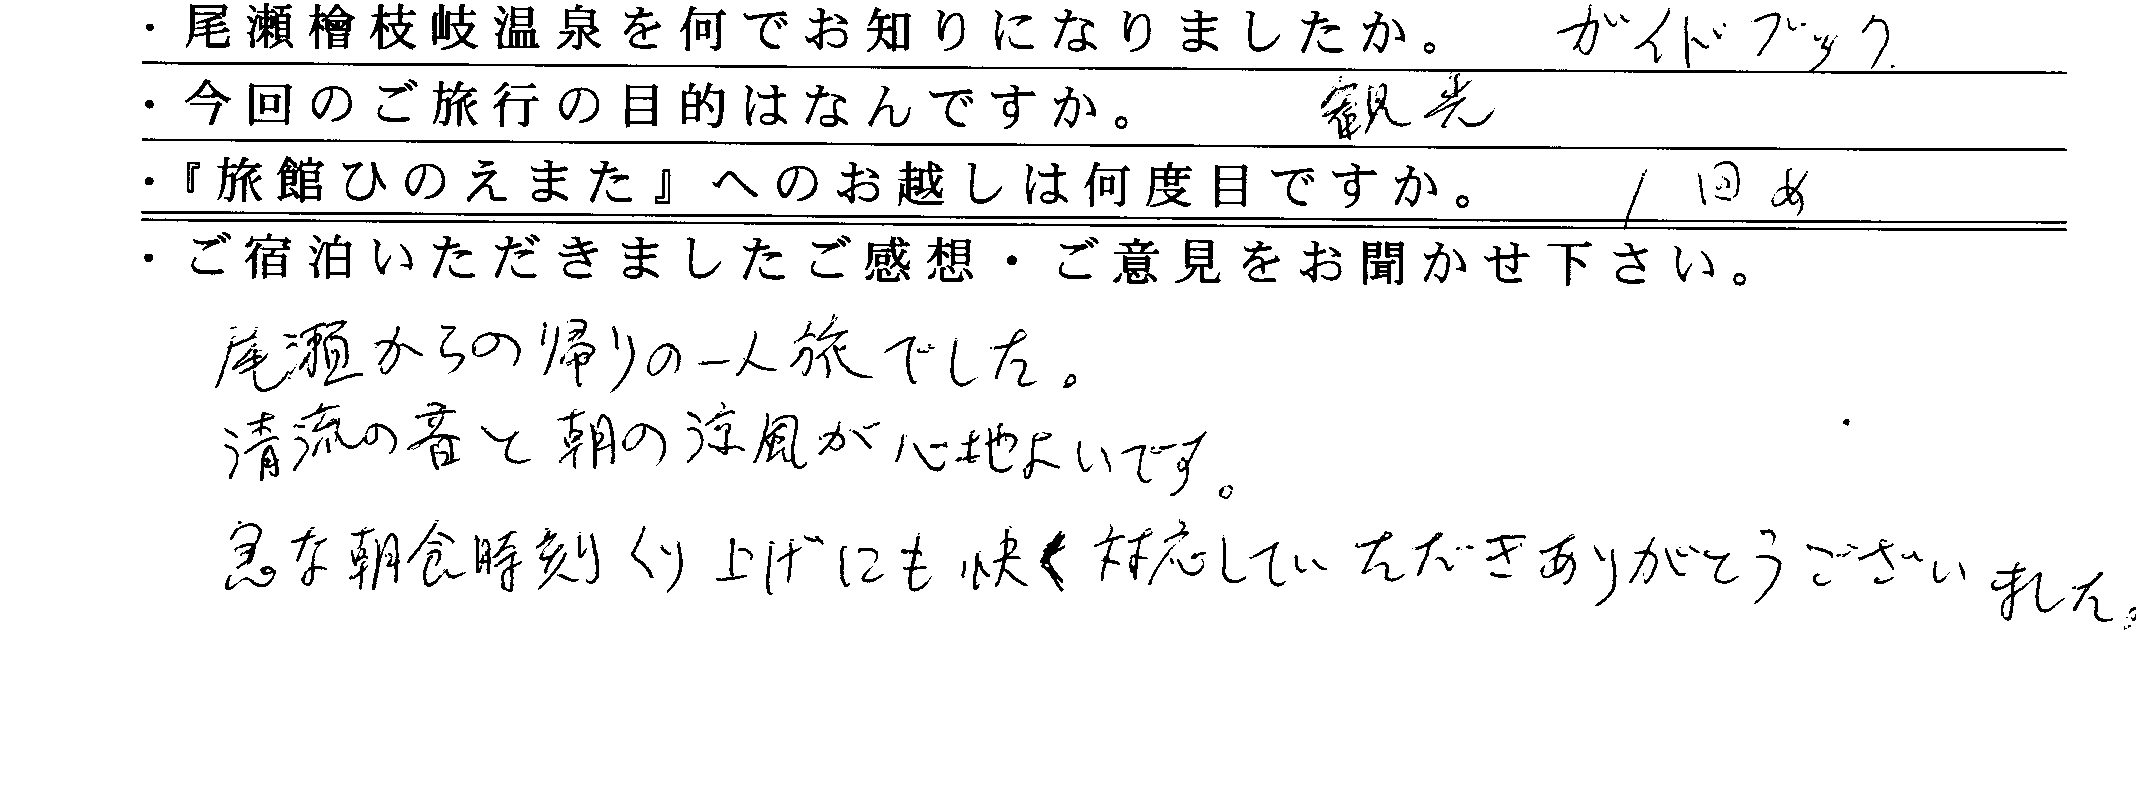 ・尾瀬檜枝岐温泉を何でお知りになりましたか。 ガイドブック
・今回のご旅行の目的はなんですか。 観光
・『旅館ひのえまた』へのお越しは何度目ですか。 1回め
・ご宿泊いただきましたご感想・ご意見をお聞かせ下さい。
尾瀬からの帰りの一人旅でした。
清流の音と朝の涼風が心地よいです。
急な朝食時刻くり上げにも快く対応していただきありがとうございました。